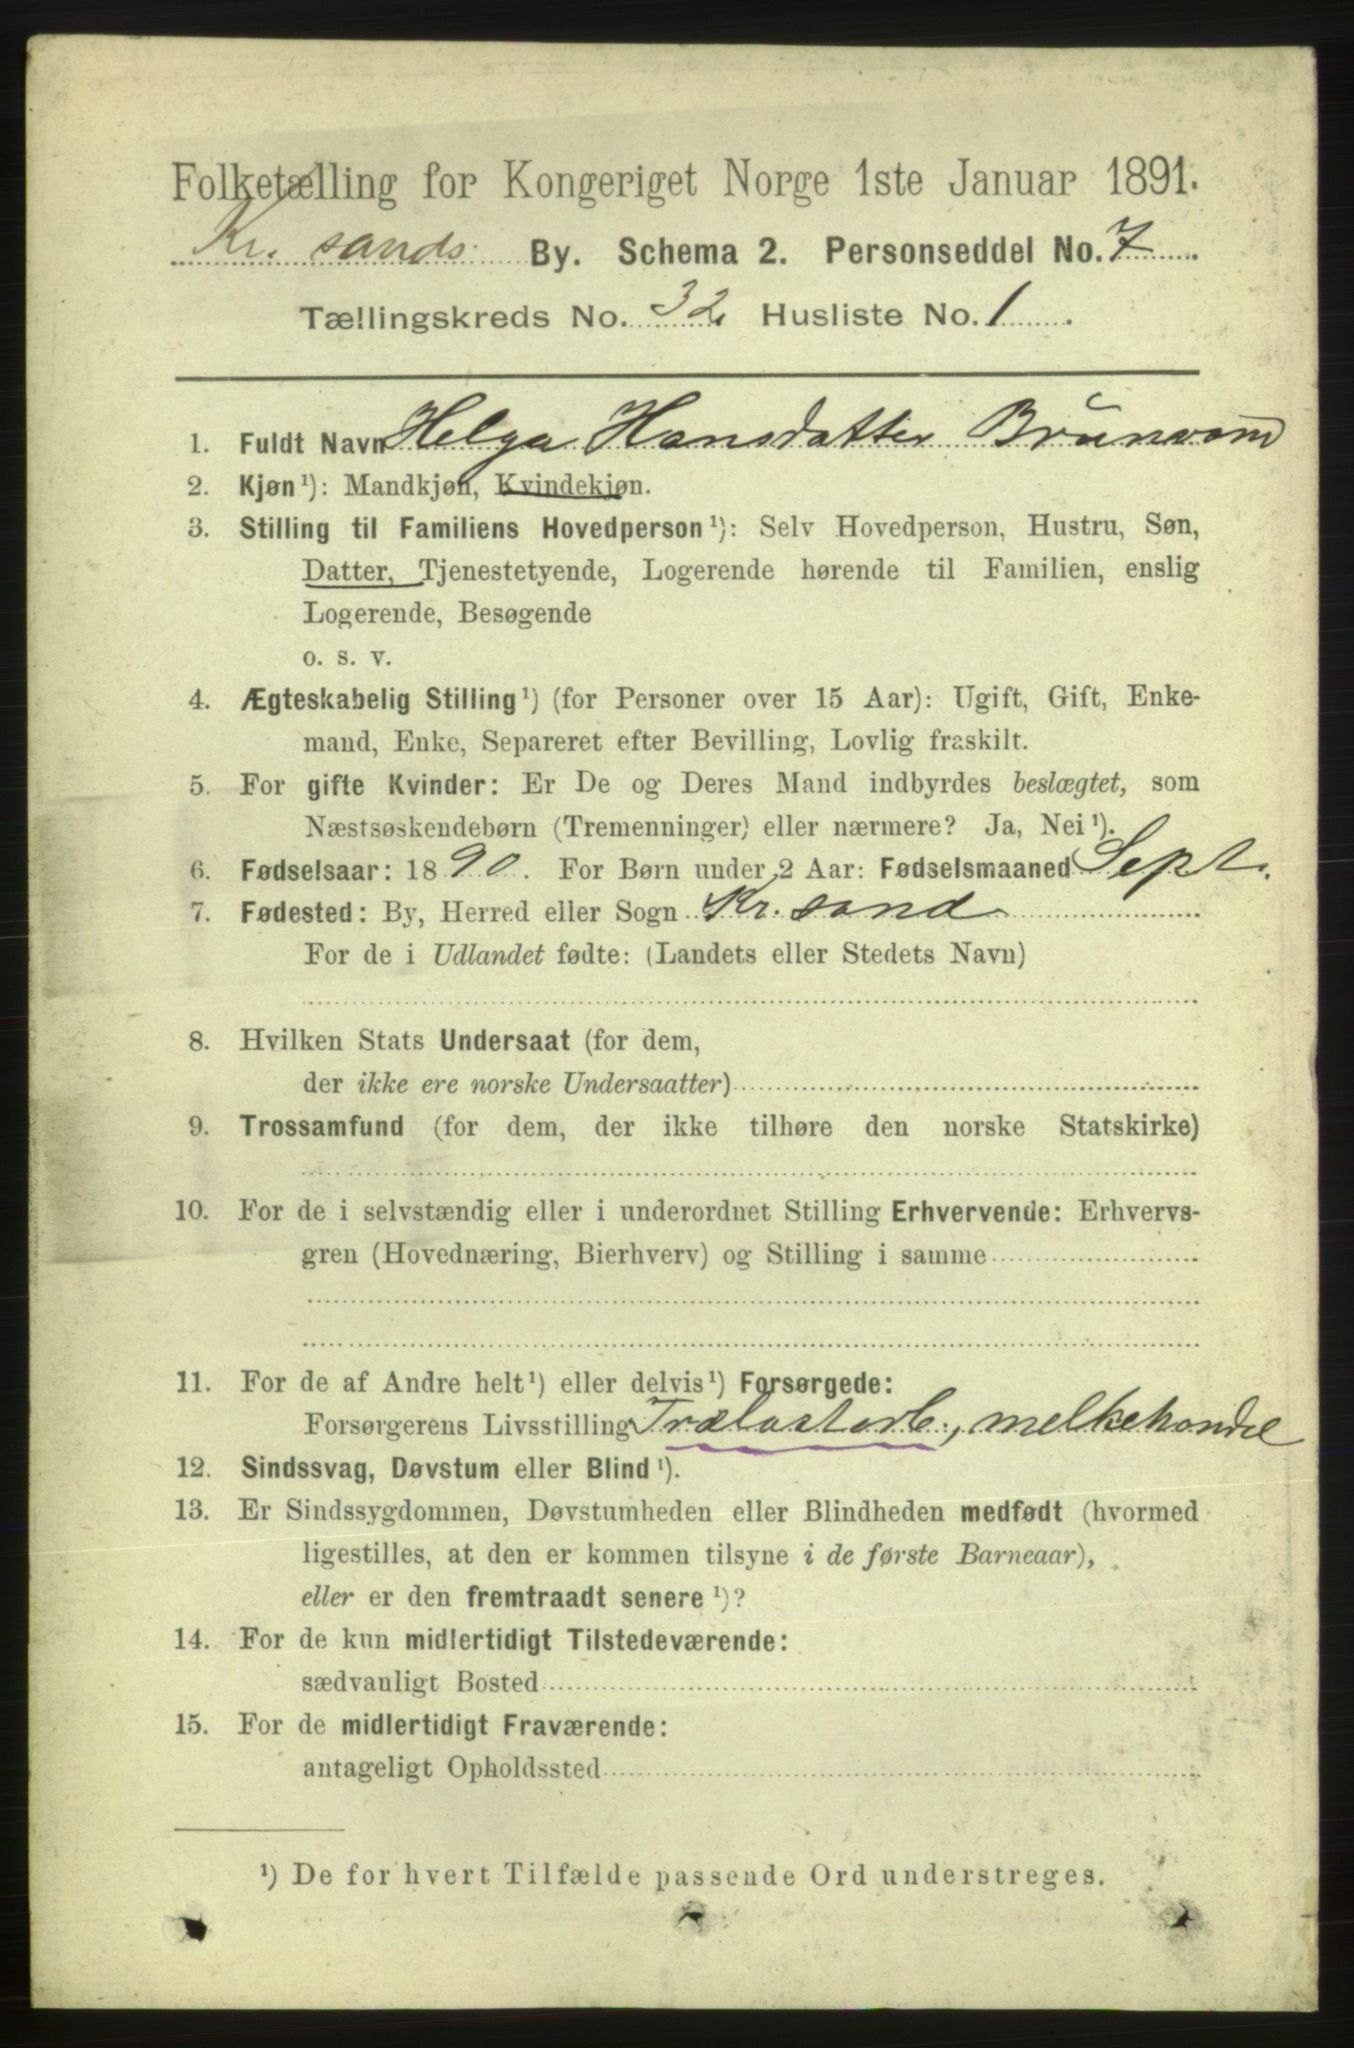 Folketælling for Kongeriget Norge 1ste Januar 1891.
Kr. sands By. Schema 2. Personseddel No. 7
Tællingskreds No. 32 Husliste No. 1
1. Fuldt Navn Helga Hansdatter Brunvand
2. Kjøn¹): Mandkjøn, Kvindekjøn.
3. Stilling til Familiens Hovedperson¹): Selv Hovedperson, Hustru, Søn,
Datter, Tjenestetyende, Logerende hørende til Familien, enslig
Logerende, Besøgende
o. s. v.
4. Ægteskabelig Stilling¹) (for Personer over 15 Aar): Ugift, Gift, Enke-
mand, Enke, Separeret efter Bevilling, Lovlig fraskilt.
5. For gifte Kvinder: Er De og Deres Mand indbyrdes beslægtet, som
Næstsøskendebørn (Tremenninger) eller nærmere? Ja, Nei¹).
6. Fødselsaar: 1890. For Børn under 2 Aar: Fødselsmaaned Sept.
7. Fødested: By, Herred eller Sogn Kr. sand
For de i Udlandet fødte: (Landets eller Stedets Navn)
8. Hvilken Stats Undersaat (for dem,
der ikke ere norske Undersaatter)
9. Trossamfund (for dem, der ikke tilhøre den norske Statskirke)
10. For de i selvstændig eller i underordnet Stilling Erhvervende: Erhvervs-
gren (Hovednæring, Bierhverv) og Stilling i samme
11. For de af Andre helt¹) eller delvis¹) Forsørgede:
Forsørgerens Livsstilling Trælastarb., melkehandel
12. Sindssvag, Døvstum eller Blind¹).
13. Er Sindssygdommen, Døvstumheden eller Blindheden medfødt (hvormed
ligestilles, at den er kommen tilsyne i de første Barneaar),
eller er den fremtraadt senere¹)?
14. For de kun midlertidigt Tilstedeværende:
sædvanligt Bosted
15. For de midlertidigt Fraværende:
antageligt Opholdssted
¹) De for hvert Tilfælde passende Ord understreges.